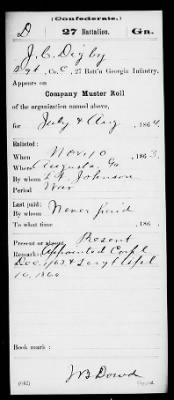 (Confederate.)
D 27 Battalion. Ga.
J. C. Digby
Sgt, Co. C, 27 Batt'n Georgia Infantry.
Appears on
Company Muster Roll
of the organization named above,
for July & Aug, 1864.
Enlisted:
When Nov. 10, 1863.
Where Augusta, Ga
By whom Johnson
Period War
Last paid:
By whom Never paid
To what time , 186 .
Present or absent Present
Remarks: Appointed Corpl
Dec. 1863 &
10, 1864
Book mark:
J B Dowd
(642)